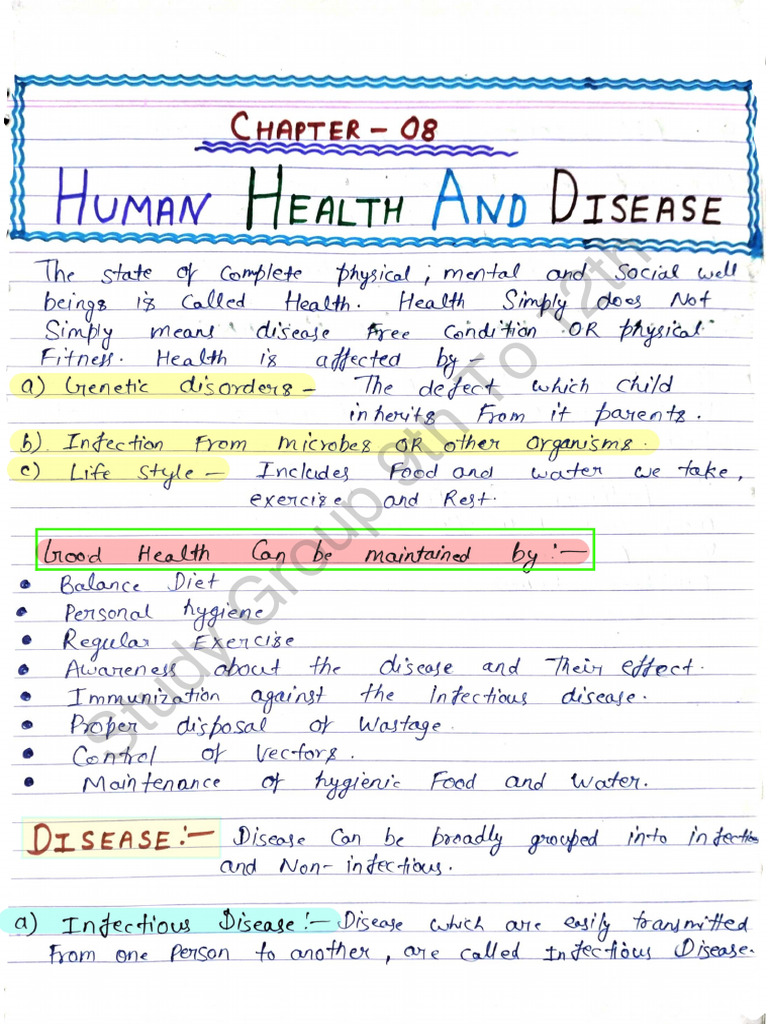 CHAPTER - 08
HUMAN HEALTH AND DISEASE
The state of complete physical, mental and social well
beings is called Health. Health Simply does Not
Simply means disease Free condition OR physical
Fitness. Health is affected by -
a) Genetic disorders - The defect which child
inherits From it parents.
b). Infection From microbes OR other organisms.
c) Life style - Includes Food and water we take,
exercise and Rest.
Good Health Can be maintained by :-
• Balance Diet
• Personal hygiene
• Regular Exercise
• Awareness about the disease and Their effect.
• Immunization against the Infectious disease.
• Proper disposal of Wastage.
• Control of Vectors.
• Maintenance of hygienic Food and Water.
DISEASE :- Disease Can be broadly grouped into infectious
and Non-infectious.
a) Infectious Disease :- Disease which are easily transmitted
From one Person to another, are called Infectious Disease.
Study Group 9th To 12th